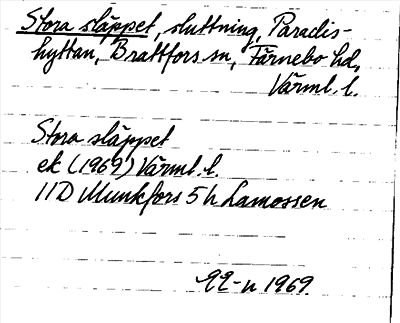 Stora släppet, sluttning, Paradis-
hyttan, Brattfors sn, Färnebo hd,
Värml. l.
Stora släppet
ek (1969) Värml. l.
11D Munkfors 5h Lamossen
-22-n 1969